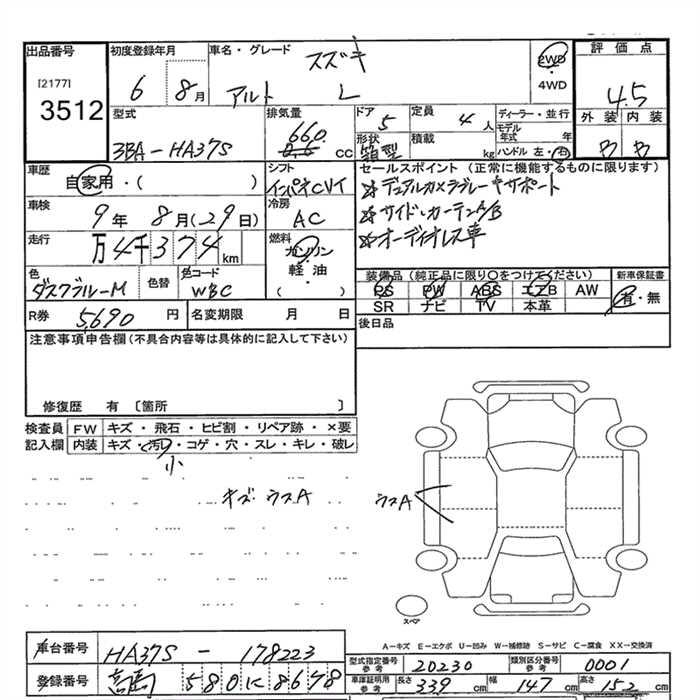 出品番号 初度登録年月 車名・グレード スズキ 2WD 評価点
[2177] 6 8月 アルト L 4WD 4.5
3512 型式 排気量 ドア 5 定員 4人 ディーラー・並行 外装 内装
3BA-HA37S 660 cc 形状 箱型 積載 kg モデル年式 年 B B
ハンドル 左・右
車歴 自家用・( ) シフト インパネCVT セールスポイント (正常に機能するものに限ります)
☆デュアルカメラブレーキサポート
車検 9年 8月(29日) 冷房 AC ☆サイド・カーテンA/B
走行 万4千374km 燃料 ガソリン ☆オーディオレス車
軽・油
( )
色 ダスクブルーM 色替 色コード WBC 装備品 (純正品に限り○をつけてください) 新車保証書
PS PW ABS エアB AW 有・無
SR ナビ TV 本革
R券 5,690円 名変期限 月 日 後日品
注意事項申告欄 (不具合内容等は具体的に記入して下さい)
修復歴 有 〔箇所 〕
検査員 FW キズ・飛石・ヒビ割・リペア跡・×要
記入欄 内装 キズ・汚れ・コゲ・穴・スレ・キレ・破レ
小
キズ・ウスA ウスA
スペア
A-キズ E-エクボ U-凹み W-補修跡 S-サビ C-腐食 XX-交換済
車台番号 HA37S - 178223 型式指定番号 参考 20230 類別区分番号 参考 0001
登録番号 580 に 8678 車庫証明用 参考 長さ 339cm 幅 147cm 高さ 152cm